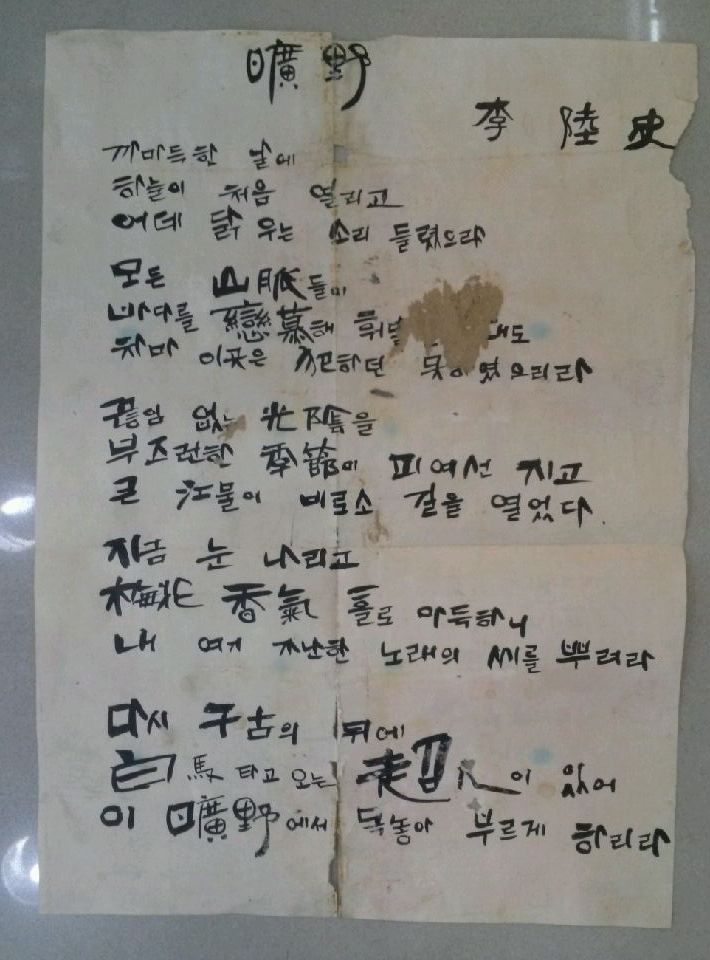 曠野
李 陸 史
까마득한 날에
하늘이 처음 열리고
어데 닭 우는 소리 들렸으라
모든 山脈들이
바다를 戀慕해
차마 이곳은 犯하던 못하였으리라
끊임 없는 光陰을
부즈런한 季節이 피여선 지고
큰 江물이 비로소 길을 열었다.
지금 눈 나리고
梅花 香氣 홀로 마득하니
내 여기 가난한 노래의 씨를 뿌려라
다시 千古의 뒤에
白馬 타고 오는 超人이 있어
이 曠野에서 목놓아 부르게 하리라